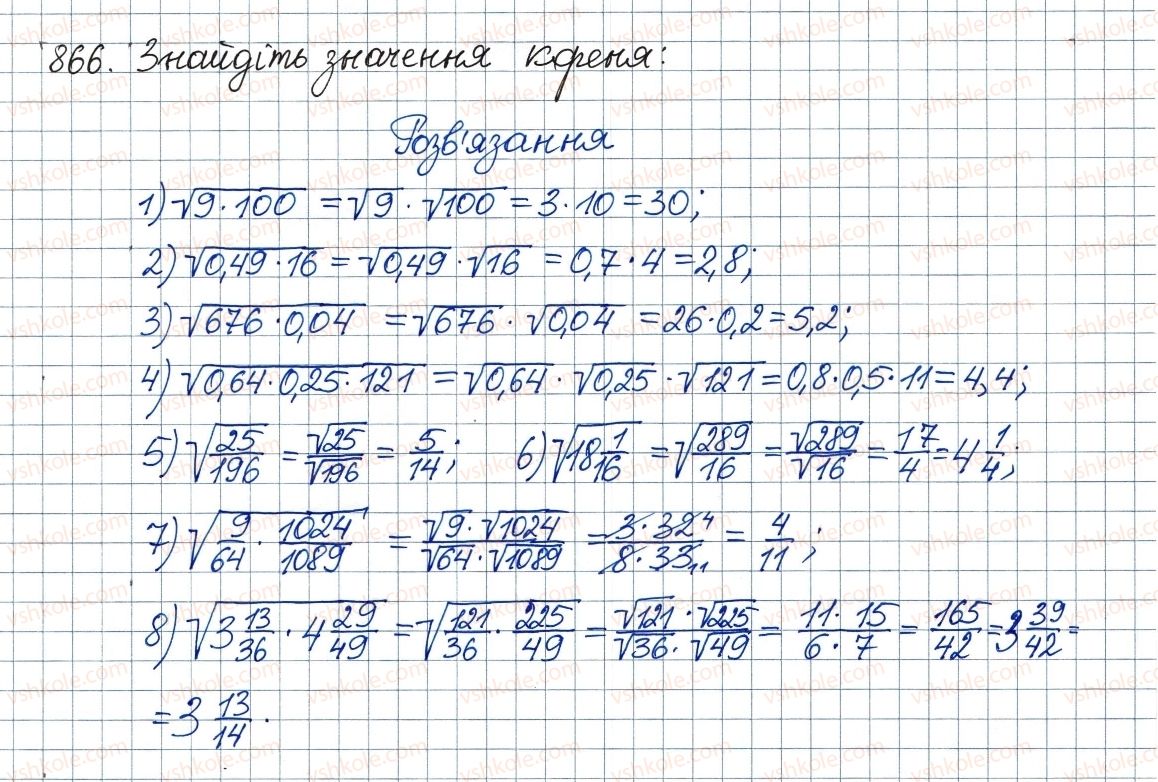 866. Знайдіть значення кореня:
Розв'язання
1) √(9·100) = √9 · √100 = 3·10 = 30;
2) √(0,49·16) = √0,49 · √16 = 0,7·4 = 2,8;
3) √(676·0,04) = √676 · √0,04 = 26·0,2 = 5,2;
4) √(0,64·0,25·121) = √0,64 · √0,25 · √121 = 0,8·0,5·11 = 4,4;
5) √(25/196) = √25/√196 = 5/14; 6) √(18 1/16) = √(289/16) = √289/√16 = 17/4 = 4 1/4;
7) √(9/64 · 1024/1089) = (√9·√1024)/(√64·√1089) = (3·32 4)/(8·33 11) = 4/11;
8) √(3 13/36 · 4 29/49) = √(121/36 · 225/49) = (√121·√225)/(√36·√49) = (11·15)/(6·7) = 165/42 = 3 39/42 =
= 3 13/14.